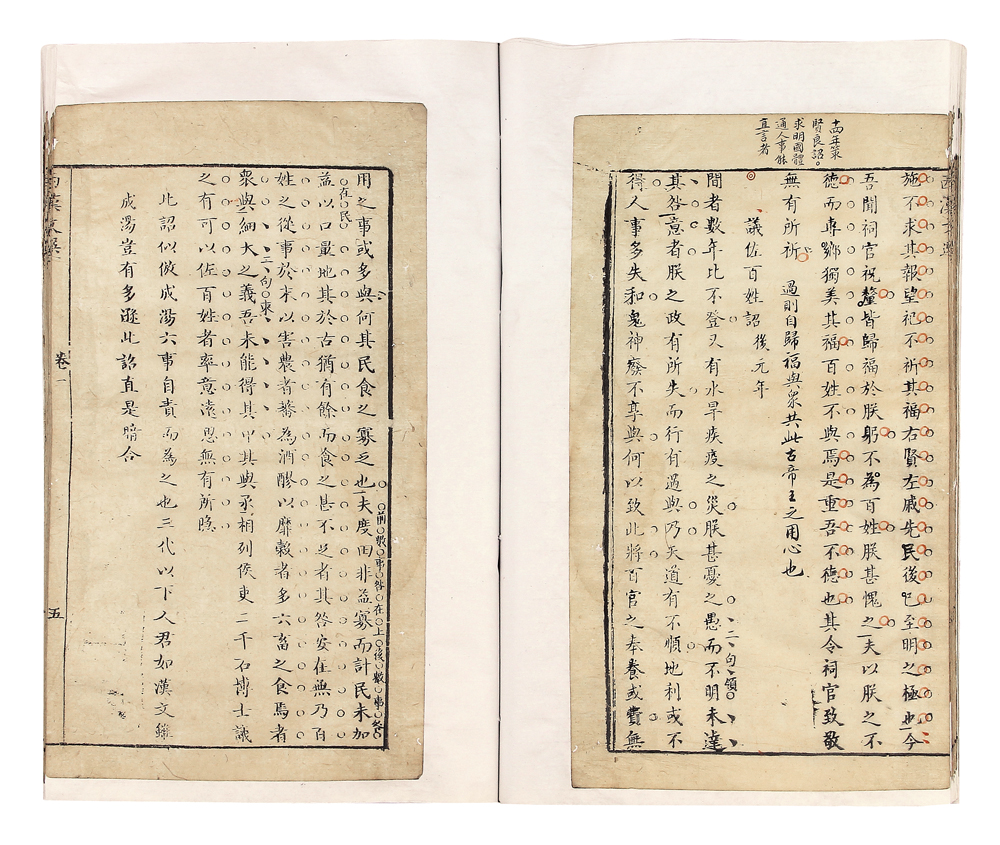 西漢文選
十四年策
賢良詔。
求明國體
通人事能
直言者
施不求其報望祀不祈其福右賢左戚先民後己至明之極也今
吾聞祠官祝釐皆歸福於朕躬不為百姓朕甚愧之夫以朕之不
德而專鄉獨美其福百姓不與焉是重吾不德也其令祠官致敬
無有所祈 過則自歸福與衆共此古帝王之用心也
議佐百姓詔 後元年
二句領
間者數年比不登又有水旱疾疫之災朕甚憂之愚而不明未達
其咎意者朕之政有所失而行有過與乃天道有不順地利或不
得人事多失和鬼神廢不享與何以致此將百官之奉養或費無
前數事咎在上後數事咎
在民
用之事或多與何其民食之寡乏也夫度田非益寡而計民未加
益以口量地其於古猶有餘而食之甚不足者其咎安在無乃百
姓之從事於末以害農者蕃為酒醪以靡穀者多六畜之食焉者
二句束
衆與細大之義吾未能得其中其與丞相列侯吏二千石博士議
之有可以佐百姓者率意遠思無有所隱
此詔似倣成湯六事自責而為之也三代以下人君如漢文繼
成湯豈有多遜此詔直是暗合
西漢文選 卷一 五